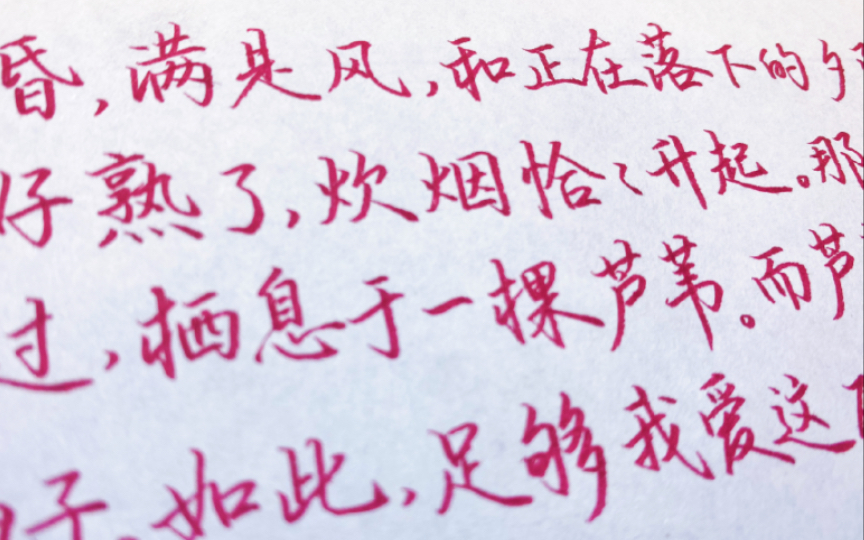 昏,满是风,和正在落下的夕
好熟了,炊烟恰々升起。那
过,栖息于一棵芦苇。而芦
好,如此,足够我爱这